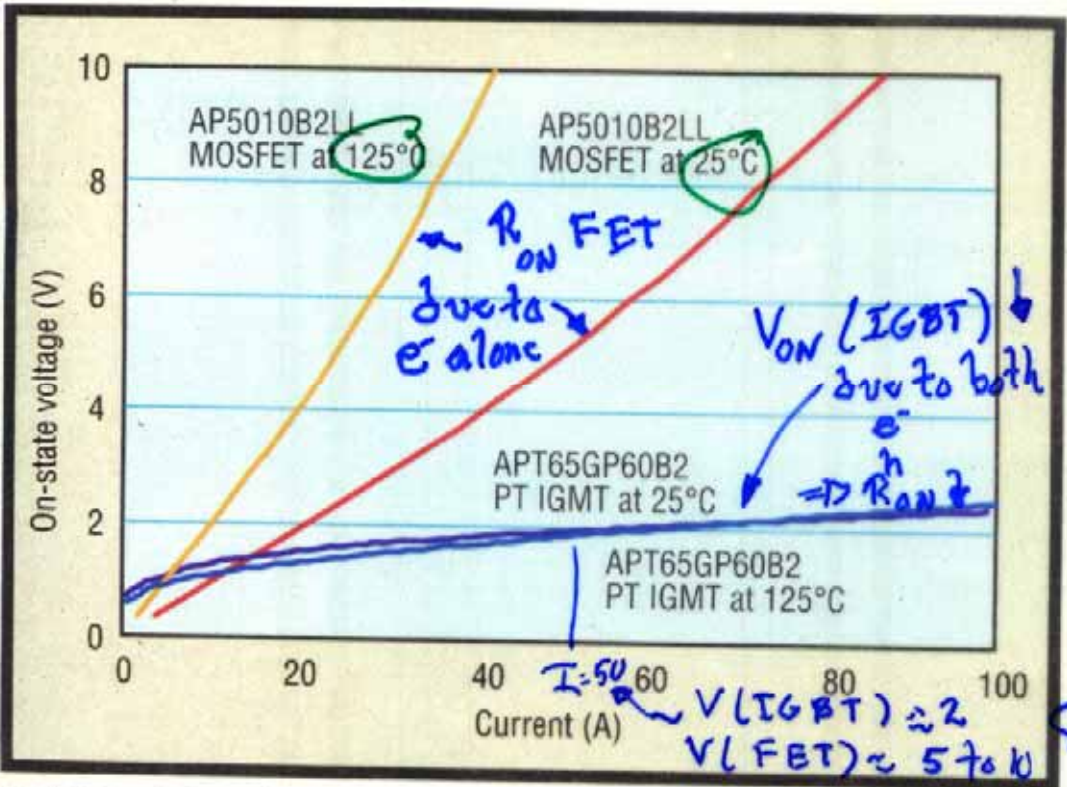 10
8
6
4
2
0
On-state voltage (V)
AP5010B2LL
MOSFET at 125°C
AP5010B2LL
MOSFET at 25°C
R_ON FET
due to
e⁻ alone
V_ON (IGBT) ↓
due to both
e⁻
h
=> R_ON ↓
APT65GP60B2
PT IGMT at 25°C
APT65GP60B2
PT IGMT at 125°C
0 20 40 60 80 100
I=50
Current (A)
V(IGBT) ≈ 2
V(FET) ~ 5 to 10